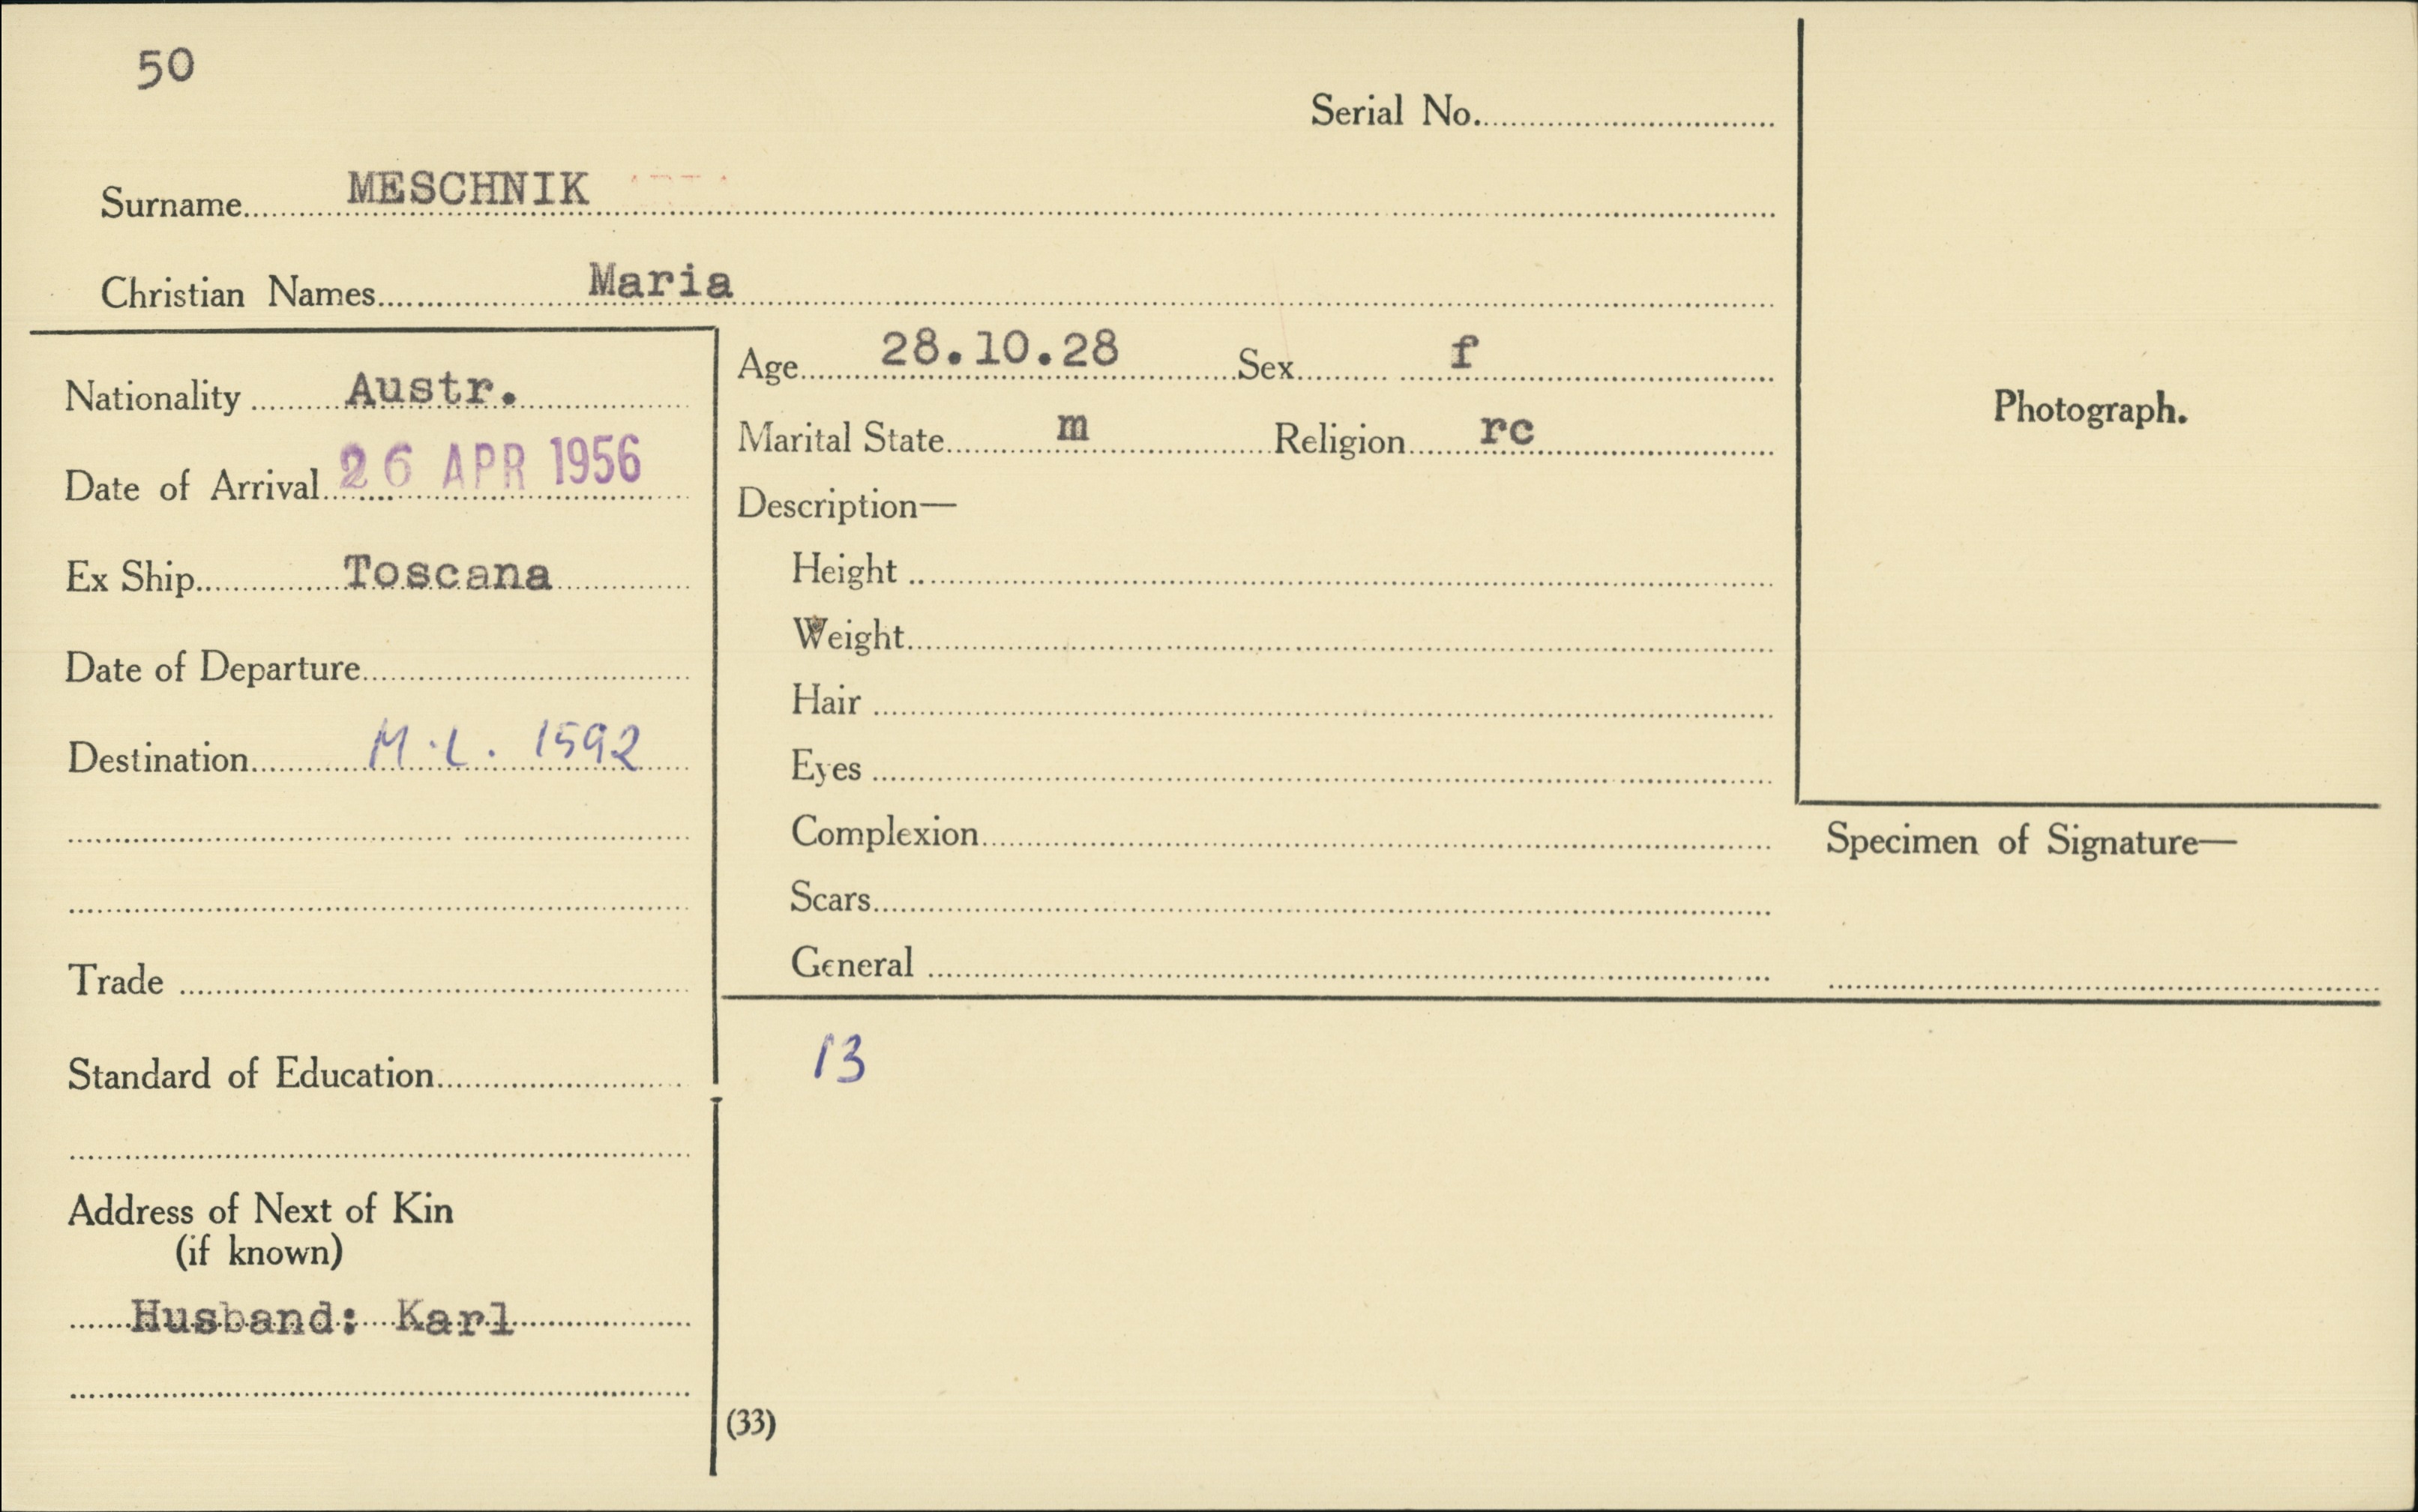 50
Serial No.
Surname MESCHNIK
Christian Names Maria
Nationality Austr.
Date of Arrival 26 APR 1956
Ex Ship Toscana
Date of Departure
Destination M.L. 1592
Trade
Standard of Education
Address of Next of Kin
(if known)
Husband: Karl
Age 28.10.28 Sex f
Marital State m Religion rc
Description—
Height
Weight
Hair
Eyes
Complexion
Scars
General
13
(33)
Photograph.
Specimen of Signature—